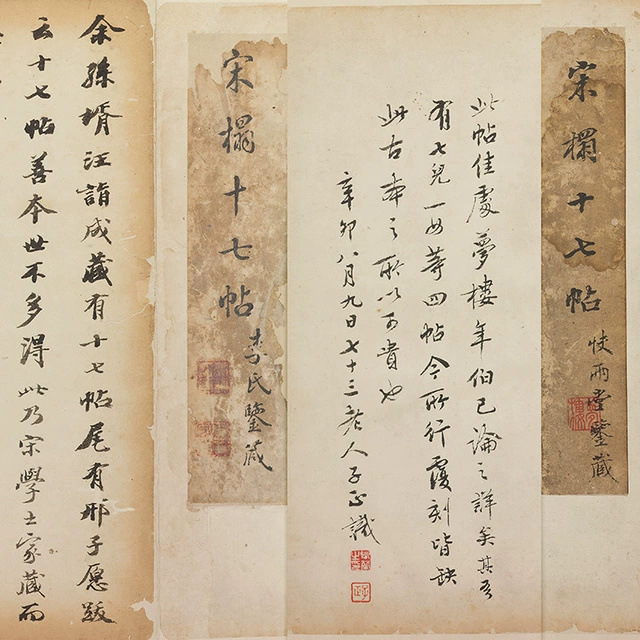 宋搨十七帖
快雨堂鑒藏
此帖佳處夢樓年伯已論之詳矣其吾
有七兒一女等四帖今所行覆刻皆缺
此古本之所以可貴也
辛卯八月九日七十三老人子正識
宋搨十七帖
李氏鑒藏
余孫壻汪詣成藏有十七帖尾有邢子愿跋
云十七帖善本世不多得此乃宋學士家藏而